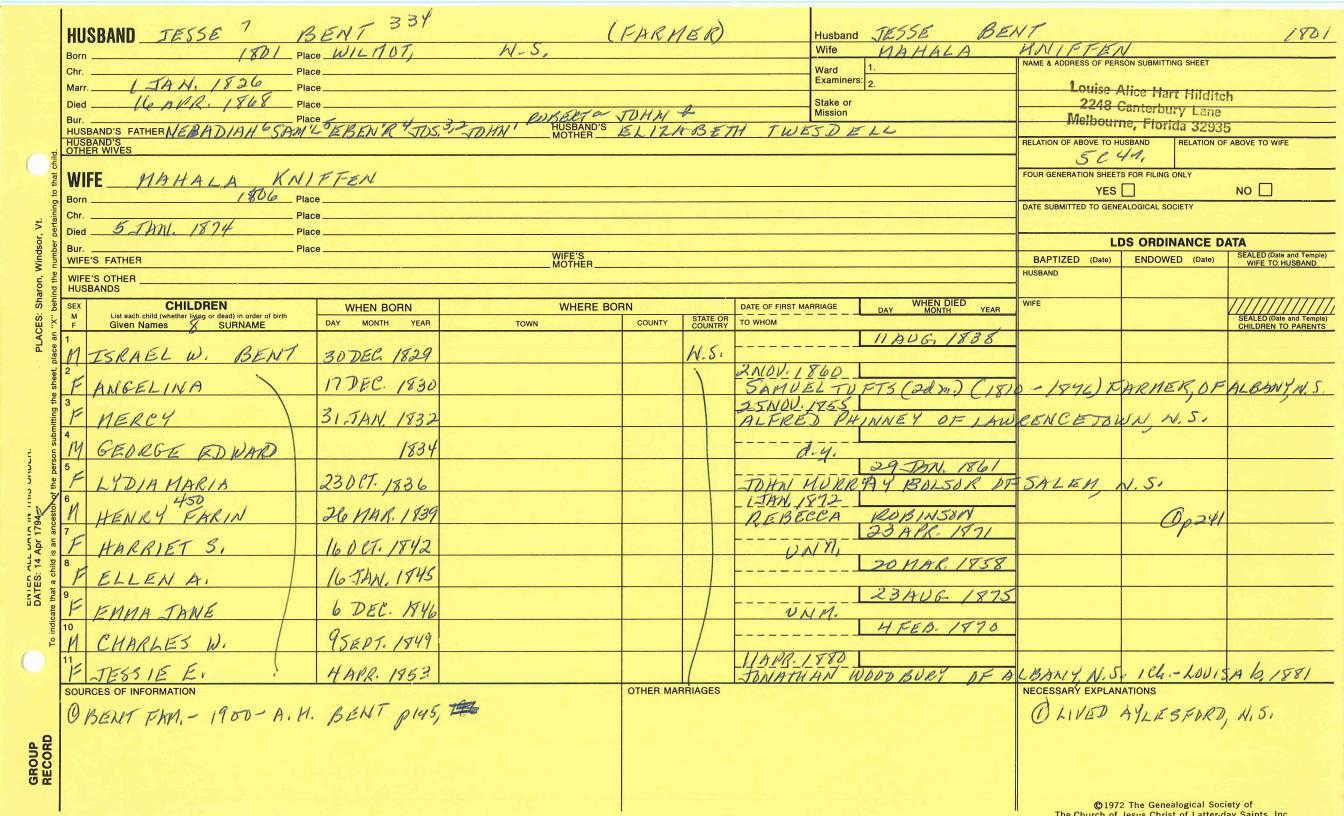 HUSBAND JESSE 7 BENT 334 (FARMER)
Born 1801 Place WILMOT, N.S.
Chr. Place
Marr. 1 JAN. 1826 Place
Died 16 APR. 1868 Place
Bur. Place
HUSBAND'S FATHER NEBADIAH 6 SAM'L 5 EBEN'R 4 JOS 3,2 JOHN 1 ROBERT or JOHN HUSBAND'S MOTHER ELIZABETH TWESDELL
HUSBAND'S OTHER WIVES
WIFE MAHALA KNIFFEN
Born 1806 Place
Chr. Place
Died 5 JAN. 1874 Place
Bur. Place
WIFE'S FATHER WIFE'S MOTHER
WIFE'S OTHER HUSBANDS
Husband JESSE BENT 1801
Wife MAHALA KNIFFEN
Ward Examiners: 1. 2.
Stake or Mission
NAME & ADDRESS OF PERSON SUBMITTING SHEET
Louise Alice Hart Hilditch
2248 Canterbury Lane
Melbourne, Florida 32935
RELATION OF ABOVE TO HUSBAND RELATION OF ABOVE TO WIFE
5C4R.
FOUR GENERATION SHEETS FOR FILING ONLY
YES NO
DATE SUBMITTED TO GENEALOGICAL SOCIETY
LDS ORDINANCE DATA
BAPTIZED (Date) ENDOWED (Date) SEALED (Date and Temple) WIFE TO HUSBAND
HUSBAND
WIFE
SEALED (Date and Temple) CHILDREN TO PARENTS
SEX M F CHILDREN WHEN BORN WHERE BORN DATE OF FIRST MARRIAGE WHEN DIED
List each child (whether living or dead) in order of birth
Given Names 8 SURNAME DAY MONTH YEAR TOWN COUNTY STATE OR COUNTRY TO WHOM DAY MONTH YEAR
1 M ISRAEL W. BENT 30 DEC. 1829 N.S. 11 AUG. 1838
2 F ANGELINA 17 DEC. 1830 2 NOV. 1860 SAMUEL TUFTS (2d m.) (1810 - 1896) FARMER, OF ALBANY, N.S.
3 F MERCY 31 JAN. 1832 25 NOV. 1855 ALFRED PHINNEY OF LAWRENCETOWN, N.S.
4 M GEORGE EDWARD 1834 d.y.
5 F LYDIA MARIA 23 OCT. 1836 29 JAN. 1861 JOHN MURRAY BOLSOR OF SALEM, N.S.
6 M HENRY FARIN 450 26 MAR. 1839 1 JAN. 1872 REBECCA ROBINSON ① p241
7 F HARRIET S. 16 OCT. 1842 UNM. 23 APR. 1871
8 F ELLEN A. 16 JAN. 1845 20 MAR. 1858
9 F EMMA JANE 6 DEC. 1846 UNM. 23 AUG 1875
10 M CHARLES W. 9 SEPT. 1849 4 FEB. 1870
11 F JESSIE E. 4 APR. 1853 11 APR. 1880 JONATHAN WOODBURY OF ALBANY, N.S. 1 ch. - LOUISA b. 1881
SOURCES OF INFORMATION
① BENT FAM. - 1900 - A.H. BENT p145,
OTHER MARRIAGES
NECESSARY EXPLANATIONS
① LIVED AYLESFORD, N.S.
©1972 The Genealogical Society of
The Church of Jesus Christ of Latter-day Saints, Inc.
PLACES: Sharon, Windsor, Vt.
ENTER ALL DATA IN THIS ORDER:
DATES: 14 Apr 1794
To indicate that a child is an ancestor of the person submitting the sheet, place an "X" behind the number pertaining to that child.
GROUP RECORD